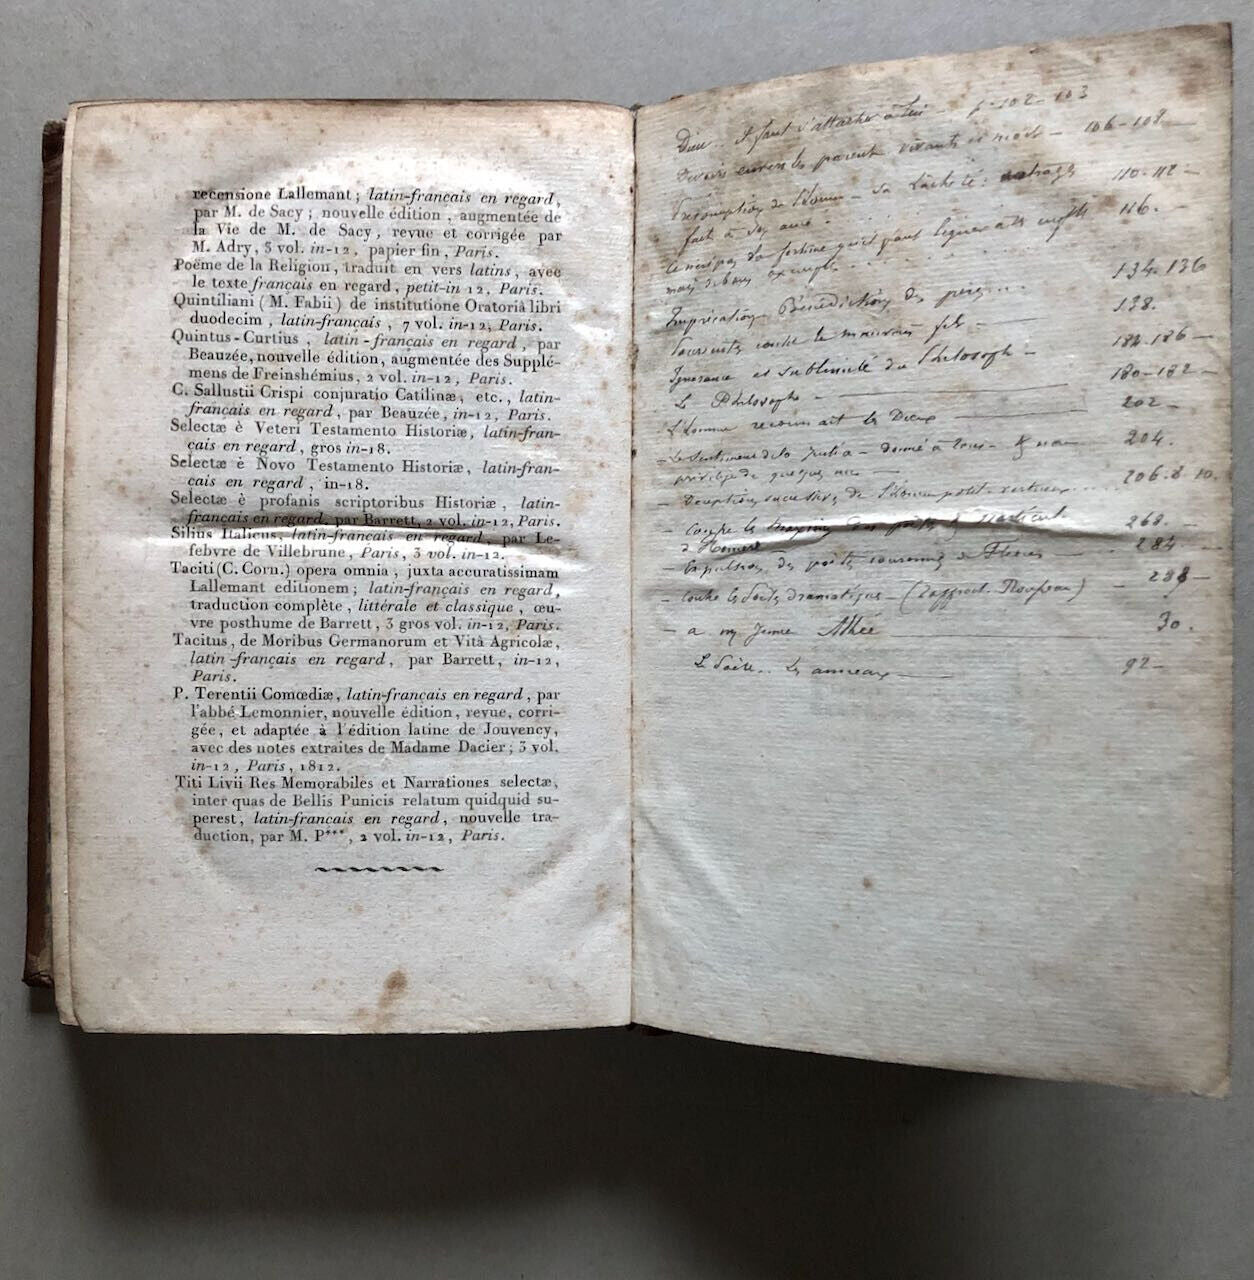 recensione Lallemant ; latin-français en regard,
par M. de Sacy ; nouvelle édition, augmentée de
la Vie de M. de Sacy, revue et corrigée par
M. Adry, 3 vol. in-12, papier fin, Paris.
Poëme de la Religion, traduit en vers latins, avec
le texte français en regard, petit-in 12, Paris.
Quintiliani (M. Fabii) de institutione Oratoriâ libri
duodecim, latin-français, 7 vol. in-12, Paris.
Quintus-Curtius, latin-français en regard, par
Beauzée, nouvelle édition, augmentée des Supplé-
mens de Freinshémius, 2 vol. in-12, Paris.
C. Sallustii Crispi conjuratio Catilinæ, etc., latin-
français en regard, par Beauzée, in-12, Paris.
Selectæ è Veteri Testamento Historiæ, latin-fran-
çais en regard, gros in-18.
Selectæ è Novo Testamento Historiæ, latin-fran-
çais en regard, in-18.
Selectæ è profanis scriptoribus Historiæ, latin-
français en regard, par Barrett, 2 vol. in-12, Paris.
Silius Italicus, latin-français en regard, par Le-
febvre de Villebrune, Paris, 3 vol. in-12.
Taciti (C. Corn.) opera omnia, juxta accuratissimam
Lallemant editionem ; latin-français en regard,
traduction complète, littérale et classique, œu-
vre posthume de Barrett, 3 gros vol. in-12, Paris.
Tacitus, de Moribus Germanorum et Vitâ Agricolæ,
latin-français en regard, par Barrett, in-12,
Paris.
P. Terentii Comœdiæ, latin-français en regard, par
l'abbé Lemonnier, nouvelle édition, revue, corri-
gée, et adaptée à l'édition latine de Jouvency,
avec des notes extraites de Madame Dacier ; 3 vol.
in-12, Paris, 1812.
Titi Livii Res Memorabiles et Narrationes selectæ,
inter quas de Bellis Punicis relatum quidquid su-
perest, latin-français en regard, nouvelle tra-
duction, par M. P***, 2 vol. in-12, Paris.
Dieu.. il faut s'attacher à lui - p. 102-103
Devoirs envers les parents vivants et morts - 106-108 -
de l'homme - sa lâcheté : outrages 110-112 -
fait à son âme
Ce n'est pas la fortune qu'il faut léguer à ses enfants 116. -
mais de bons exemples
Imprécation - Bénédiction des pères... 134-136
contre le mauvais fils - 138.
Ignorance et sublimité du Philosophe - 184-186 -
Le Philosophe - 180-182 -
L'Homme reconnait les Dieux 202 -
- Le sentiment de la justice - donné à tous - 204.
privilège de quelques uns -
- de l'homme 206.
contre les
d'Homère 268.
- Expulsion des poètes couronnés de Fleurs 284 -
- contre les Poètes dramatiques - (Rapproch. Rousseau) - 288 -
- a un jeune Athée 30.
Les anneaux - 92 -